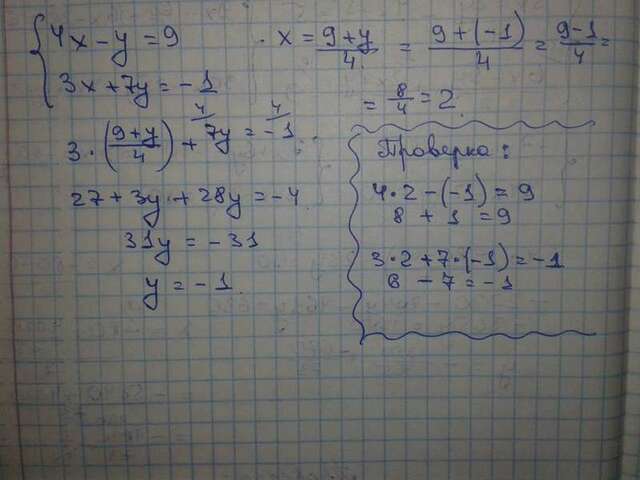 { 4x - y = 9
3x + 7y = -1
3 · ((9+y)/4) + 7y = -1
4 4
27 + 3y + 28y = -4
31y = -31
y = -1
x = (9+y)/4 = (9+(-1))/4 = (9-1)/4 =
= 8/4 = 2
Проверка:
4·2-(-1)=9
8 + 1 = 9
3·2+7·(-1)=-1
6 - 7 = -1